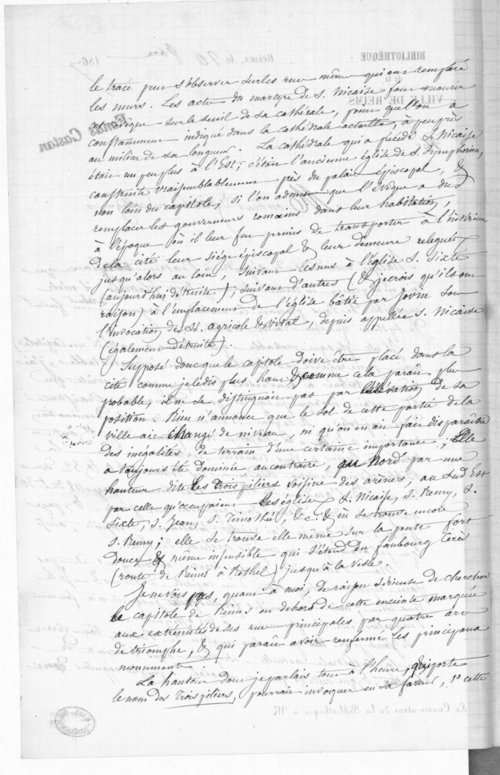 le tracé peu s'observer sur les rues même qui ont remplacé
les murs. Les actes du martyre de S. Nicaise font mourir
cet évêque sur le seuil de sa cathédrale, point qu'on a
constamment indiqué dans la cathédrale actuelle, à peu près
au milieu de sa longueur. La cathédrale qui a précédé S. Nicaise
était un peu plus à l'Est; c'était l'ancienne église de S. Symphorien,
construite vraisemblablement près du palais épiscopal, &
non loin du capitole, si l'on admet que l'évêque a dû
remplacer les gouverneurs romains dans leur habitation,
à l'époque où il leur fut permis de transporter à l'intérieur
de la cité leur siége épiscopal & leur demeure relégués
jusqu'alors au loin, suivant à l'église S. Sixte
(aujourd'hui détruite), suivant d'autres (& je crois qu'ils ont
raison) à l'emplacement de l'église bâtie par Jovin sous
l'invocation de SS. Agricole & Vital, depuis appelée S. Nicaise
(également détruite).
Supposé donc que le capitole doive être placé dans la
cité comme je le dis plus haut & comme cela paraît plus
probable, il ne se distinguait pas par l'élévation de sa
position. Rien n'annonce que le sol de cette partie de la
ville ait changé de niveau, ni qu'on en ait fait disparaître
des inégalités de terrain d'une certaine importance. Elle
a toujours été dominée au contraire, au Nord par une
hauteur dite les Trois piliers voisine des arènes, au Sud Est
par celle qu'occupaient les églises S. Nicaise, S. Remy, S.
Sixte, S. Jean, S. Timothée, &c. & où se trouve encore
S. Remy; elle se trouve elle même sur la pente fort
douce & même insensible qui s'étend du faubourg Cérès
(route de Reims à Rethel) jusqu'à la Vesle.
Je ne vois pas, quant à moi, de raison sérieuse de chercher
le capitole de Reims en dehors de cette enceinte marquée
aux extrémités de ses rues principales par quatre arcs
de triomphe, & qui paraît avoir renfermé les principaux
monuments.
La hauteur dont je parlais tout à l'heure, qui porte
le nom des Trois piliers, pourrait invoquer en sa faveur, 1° cette